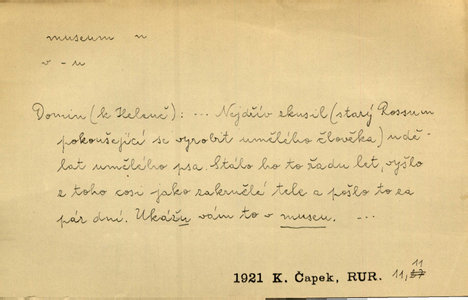 museum n
v - u
Domin (k Heleně): ... Nejdřív zkusil (starý Rossum
pokoušející se vyrobit umělého člověka) udě-
lat umělého psa. Stálo ho to řadu let, vyšlo
z toho cosi jako zakrnělé tele a pošlo to za
pár dní. Ukážu vám to v museu. ...
1921 K. Čapek, RUR. 11, 11